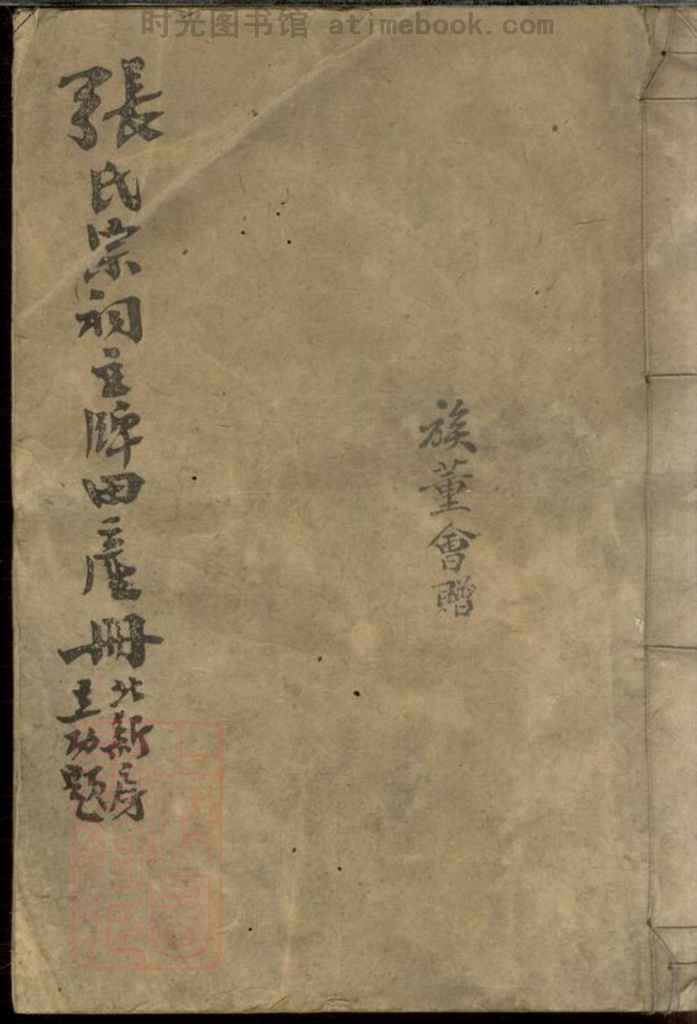 时光图书馆 atimebook.com
族董會贈
張氏宗祠主牌田產冊
北新房
主功題